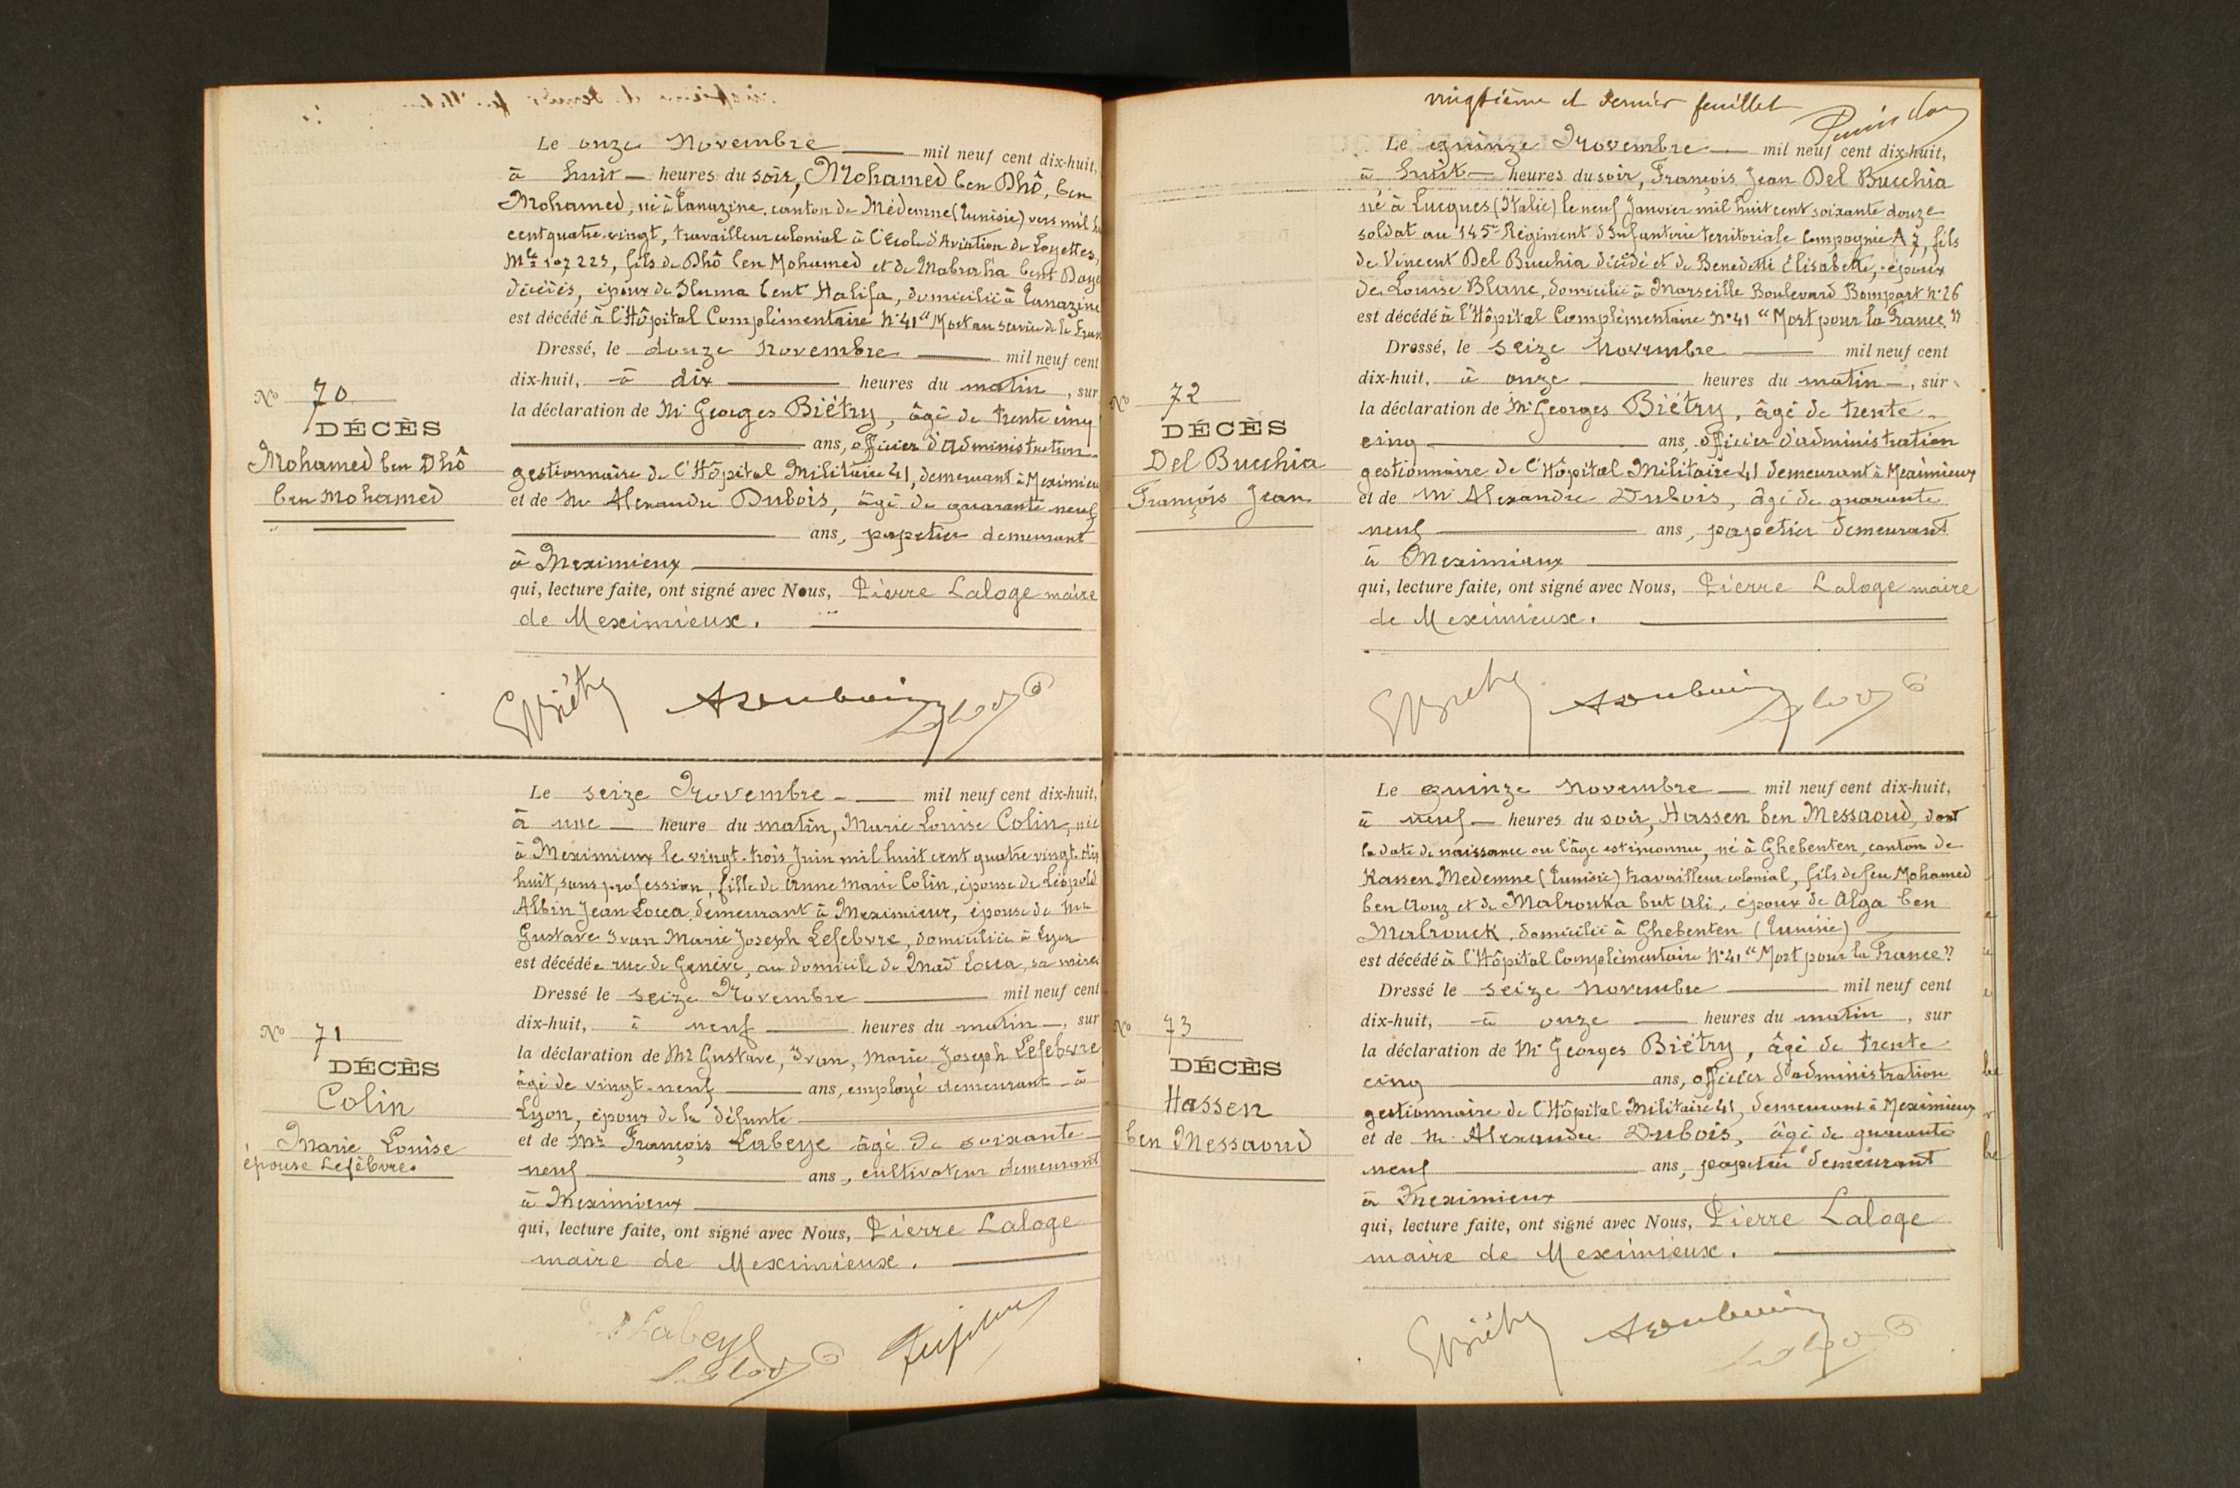 Le onze Novembre mil neuf cent dix-huit,
à huit heures du soir, Mohamed ben Dhô, ben
Mohamed, né à Tanazine, canton de Médenine (Tunisie) vers mil
cent quatre-vingt, travailleur colonial à l'école d'Aviation de Loyettes,
Mle 107223, fils de Dhô ben Mohamed et de Mabrouka bent
décédés, époux de Sluma bent Halifa, domicilié à Tanazine
est décédé à l'Hôpital Complémentaire N°41 "Mort au service de la
Dressé, le douze novembre mil neuf cent
dix-huit, à dix heures du matin, sur
la déclaration de Mr Georges Biétry, âgé de trente cinq
ans, officier d'administration
gestionnaire de l'Hôpital Militaire 41, demeurant à Meximieux
et de Mr Alexandre Dubois, âgé de quarante neuf
ans, papetier demeurant
à Meximieux
qui, lecture faite, ont signé avec Nous, Pierre Laloge maire
de Meximieux.
No 70
DÉCÈS
Mohamed ben Dhô
ben Mohamed
GBiétry
Le seize Novembre mil neuf cent dix-huit,
à une heure du matin, Marie Louise Colin, née
à Meximieux le vingt-trois Juin mil huit cent quatre vingt dix
huit, sans profession, fille de Anne Marie Colin, épouse de Léopold
Albin Jean Locca, demeurant à Meximieux, épouse de Mr
Gustave Ivan Marie Joseph Lefebvre, domiciliée à Lyon
est décédée rue de Genève, au domicile de Made Locca, sa mère
Dressé le seize Novembre mil neuf cent
dix-huit, à neuf heures du matin, sur
la déclaration de Mr Gustave, Ivan, Marie Joseph Lefebvre
âgé de vingt-neuf ans, employé demeurant à
Lyon, époux de la défunte
et de Mr François Labeye âgé de soixante
neuf ans, cultivateur demeurant
à Meximieux
qui, lecture faite, ont signé avec Nous, Pierre Laloge
maire de Meximieux.
No 71
DÉCÈS
Colin
Marie Louise
épouse Lefèbvre.
Labeye
vingtième et dernier feuillet
Le quinze Novembre mil neuf cent dix-huit,
à huit heures du soir, François Jean Del Bucchia
né à Lucques (Italie) le neuf Janvier mil huit cent soixante douze
soldat au 145e Régiment d'Infanterie territoriale Compagnie A 7, fils
de Vincent Del Bucchia décédé et de Benedetti Elisabette, époux
de Louise Blanc, domicilié à Marseille Boulevard Bompart N°26
est décédé à l'Hôpital Complémentaire N°41 "Mort pour la France"
Dressé, le seize novembre mil neuf cent
dix-huit, à onze heures du matin, sur
la déclaration de Mr Georges Biétry, âgé de trente
cinq ans, officier d'administration
gestionnaire de l'Hôpital Militaire 41 demeurant à Meximieux
et de Mr Alexandre Dubois, âgé de quarante
neuf ans, papetier demeurant
à Meximieux
qui, lecture faite, ont signé avec Nous, Pierre Laloge maire
de Meximieux.
No 72
DÉCÈS
Del Bucchia
François Jean
GBiétry
Le quinze novembre mil neuf cent dix-huit,
à neuf heures du soir, Hassen ben Messaoud, dont
la date de naissance ou l'âge est inconnu, né à Ghebenten, canton de
Kassen Medenine (Tunisie) travailleur colonial, fils de feu Mohamed
ben Aouz et de Mabrouka but Ali, époux de Alga ben
Mabrouck, domicilié à Ghebenten (Tunisie)
est décédé à l'Hôpital Complémentaire N°41 "Mort pour la France"
Dressé le seize novembre mil neuf cent
dix-huit, à onze heures du matin, sur
la déclaration de Mr Georges Biétry, âgé de trente
cinq ans, officier d'administration
gestionnaire de l'Hôpital Militaire 41, demeurant à Meximieux
et de Mr Alexandre Dubois, âgé de quarante
neuf ans, papetier demeurant
à Meximieux
qui, lecture faite, ont signé avec Nous, Pierre Laloge
maire de Meximieux.
No 73
DÉCÈS
Hassen
ben Messaoud
GBiétry